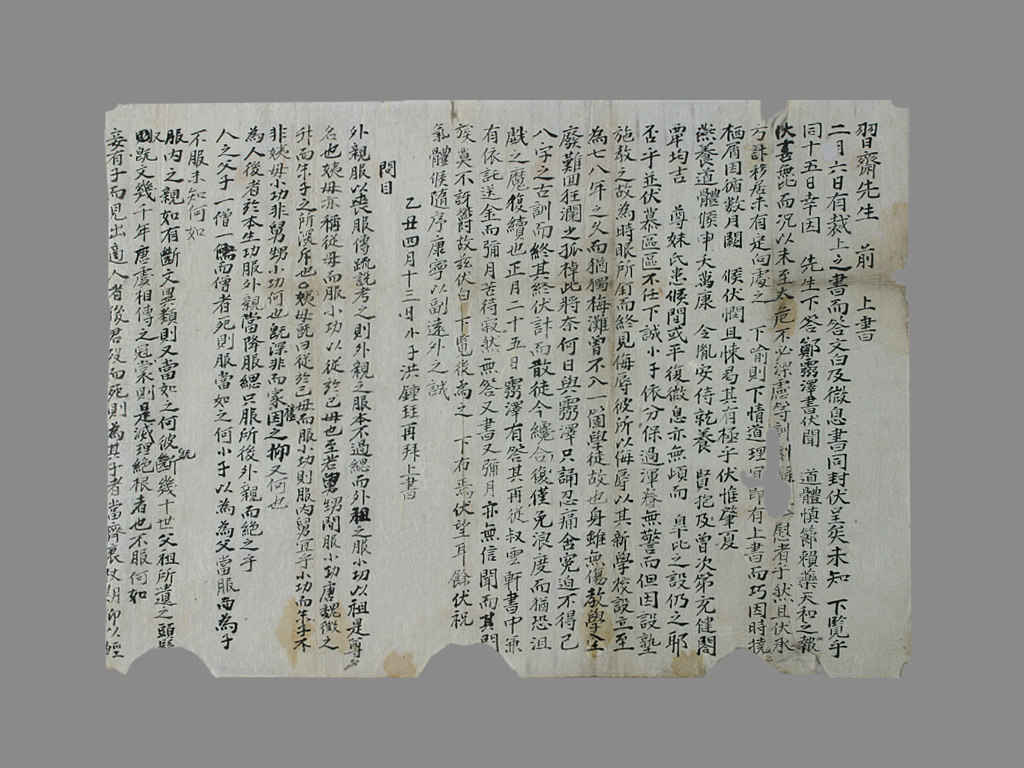 習齋先生 前 上書
二月六日有裁上之書而答文白及微息書同封伏呈矣未知 下覽乎
同十五日幸因 先生下答鄭霽澤書伏聞 道體愼節賴藥天和之報
伏喜無比而況以未至太危不必深慮等訓 慰者乎然且伏承
方謀移居未有定向處之 下喻則下情道理宜卽有上書而巧因時撓
栖屑因循數月闕 候伏憫且悚曷其有極乎伏惟肇夏
燕養道體候申夭萬康 令胤安侍乾養 賢抱及曾次第充健閤
覃均吉 尊妹氏患候間或平復微息亦無頉而 皐比之設仍之耶
否乎並伏慕區區不任下誠小子依分保過渾眷無警而但因設塾
施敎之故爲時眼所釘而終見侮辱彼所以侮辱以其新學校設立至
爲七八年之久而猶獨梅灘曾不入一箇學徒故也身雖無傷敎學全
廢難回狂瀾之孤棹此將奈何日與霽澤只誦忍痛含寃迫不得已
八字之古訓而終其終伏計而散徒今纔合復僅免浪度而猶恐沮
戱之魔復續也正月二十五日霽澤有答其再從叔雲軒書中兼
有依託送金而彌月苦待寂然無答又書又彌月亦無信聞而其間
族莫不訝鬱故玆伏白 下覽後爲之 下布焉伏望耳餘伏祝
氣體候隨序康寧以副遠外之誠
乙丑四月十三日小子洪鐘珏再拜上書
問目
外親服以喪服傳疏說考之則外親之服本不過緦而外祖之服小功以祖是尊
名也姨母亦稱從母而服小功以從於己母也至若舅甥間服小功唐魏徵之
升而朱子之所深斥也姨母旣曰從於己母而服小功則服內舅宜乎小功而朱子不
非姨母小功非舅甥小功何也旣深非而家因舊之抑又何也
爲人後者於本生功服外親當降服緦只服所後外親而絶之乎
人之父子一僧一儒而僧者死則服當如之何小子以爲爲父當服而爲子
不服未知何如
服內之親如有斷文異類則又當如之何彼斷幾十世父祖所遺之頭髮
又旣毁幾千年唐虞相傳之冠裳則是滅理絶根者也不服何如
妾有子而見出適人者後君沒而死則爲其子者當齊衰杖期卽以經